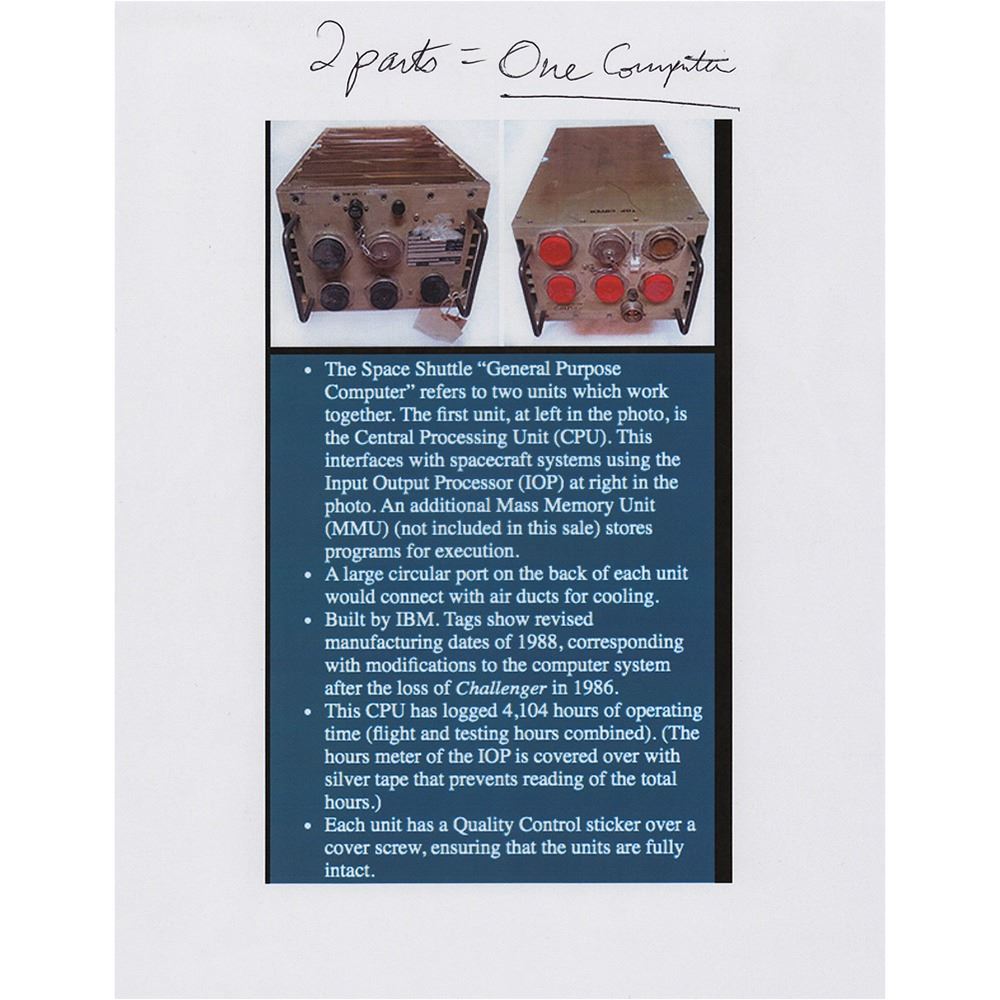 2 parts = One Computer
TOP COVER
• The Space Shuttle “General Purpose
Computer” refers to two units which work
together. The first unit, at left in the photo, is
the Central Processing Unit (CPU). This
interfaces with spacecraft systems using the
Input Output Processor (IOP) at right in the
photo. An additional Mass Memory Unit
(MMU) (not included in this sale) stores
programs for execution.
• A large circular port on the back of each unit
would connect with air ducts for cooling.
• Built by IBM. Tags show revised
manufacturing dates of 1988, corresponding
with modifications to the computer system
after the loss of Challenger in 1986.
• This CPU has logged 4,104 hours of operating
time (flight and testing hours combined). (The
hours meter of the IOP is covered over with
silver tape that prevents reading of the total
hours.)
• Each unit has a Quality Control sticker over a
cover screw, ensuring that the units are fully
intact.